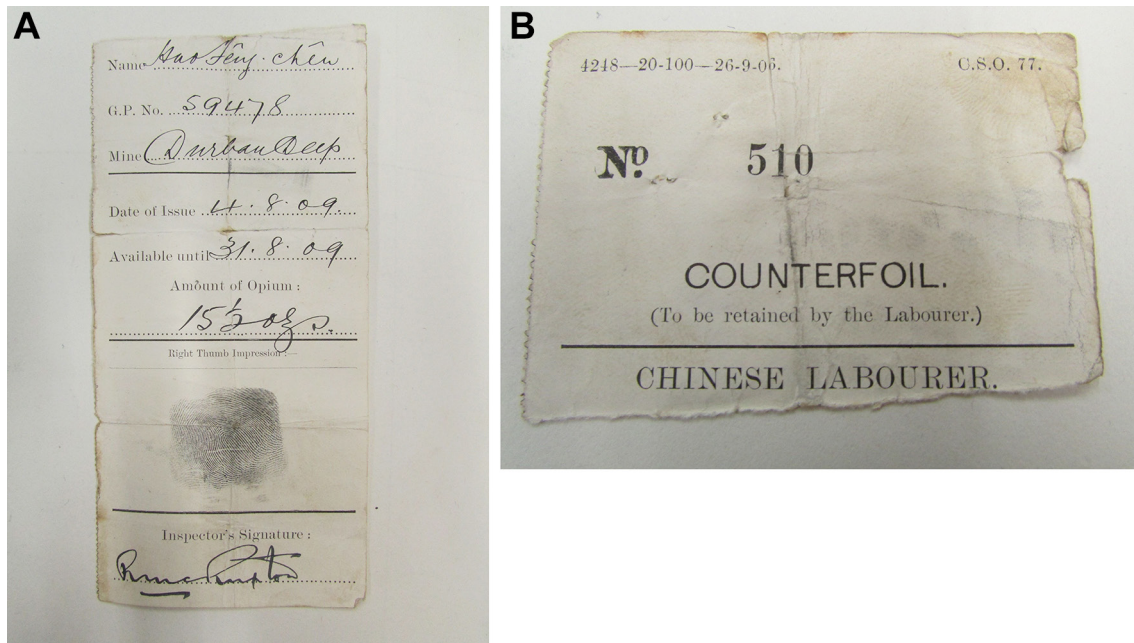 A
Name Hao Fêng-chên
G.P. No. 59478
Mine Durban Deep
Date of Issue 4.8.09
Available until 31.8.09
Amount of Opium :
15½ ozs.
Right Thumb Impression :—
Inspector's Signature :
B
4248—20-100—26-9-06.
C.S.O. 77.
No. 510
COUNTERFOIL.
(To be retained by the Labourer.)
CHINESE LABOURER.